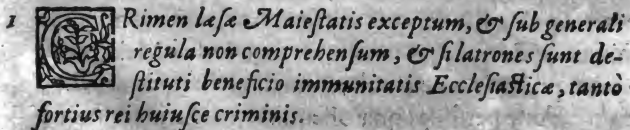 1 CRimen læsæ Maiestatis exceptum, & sub generali
regula non comprehensum, & si latrones sunt de-
stituti beneficio immunitatis Ecclesiasticæ, tantò
fortius rei huiusce criminis.